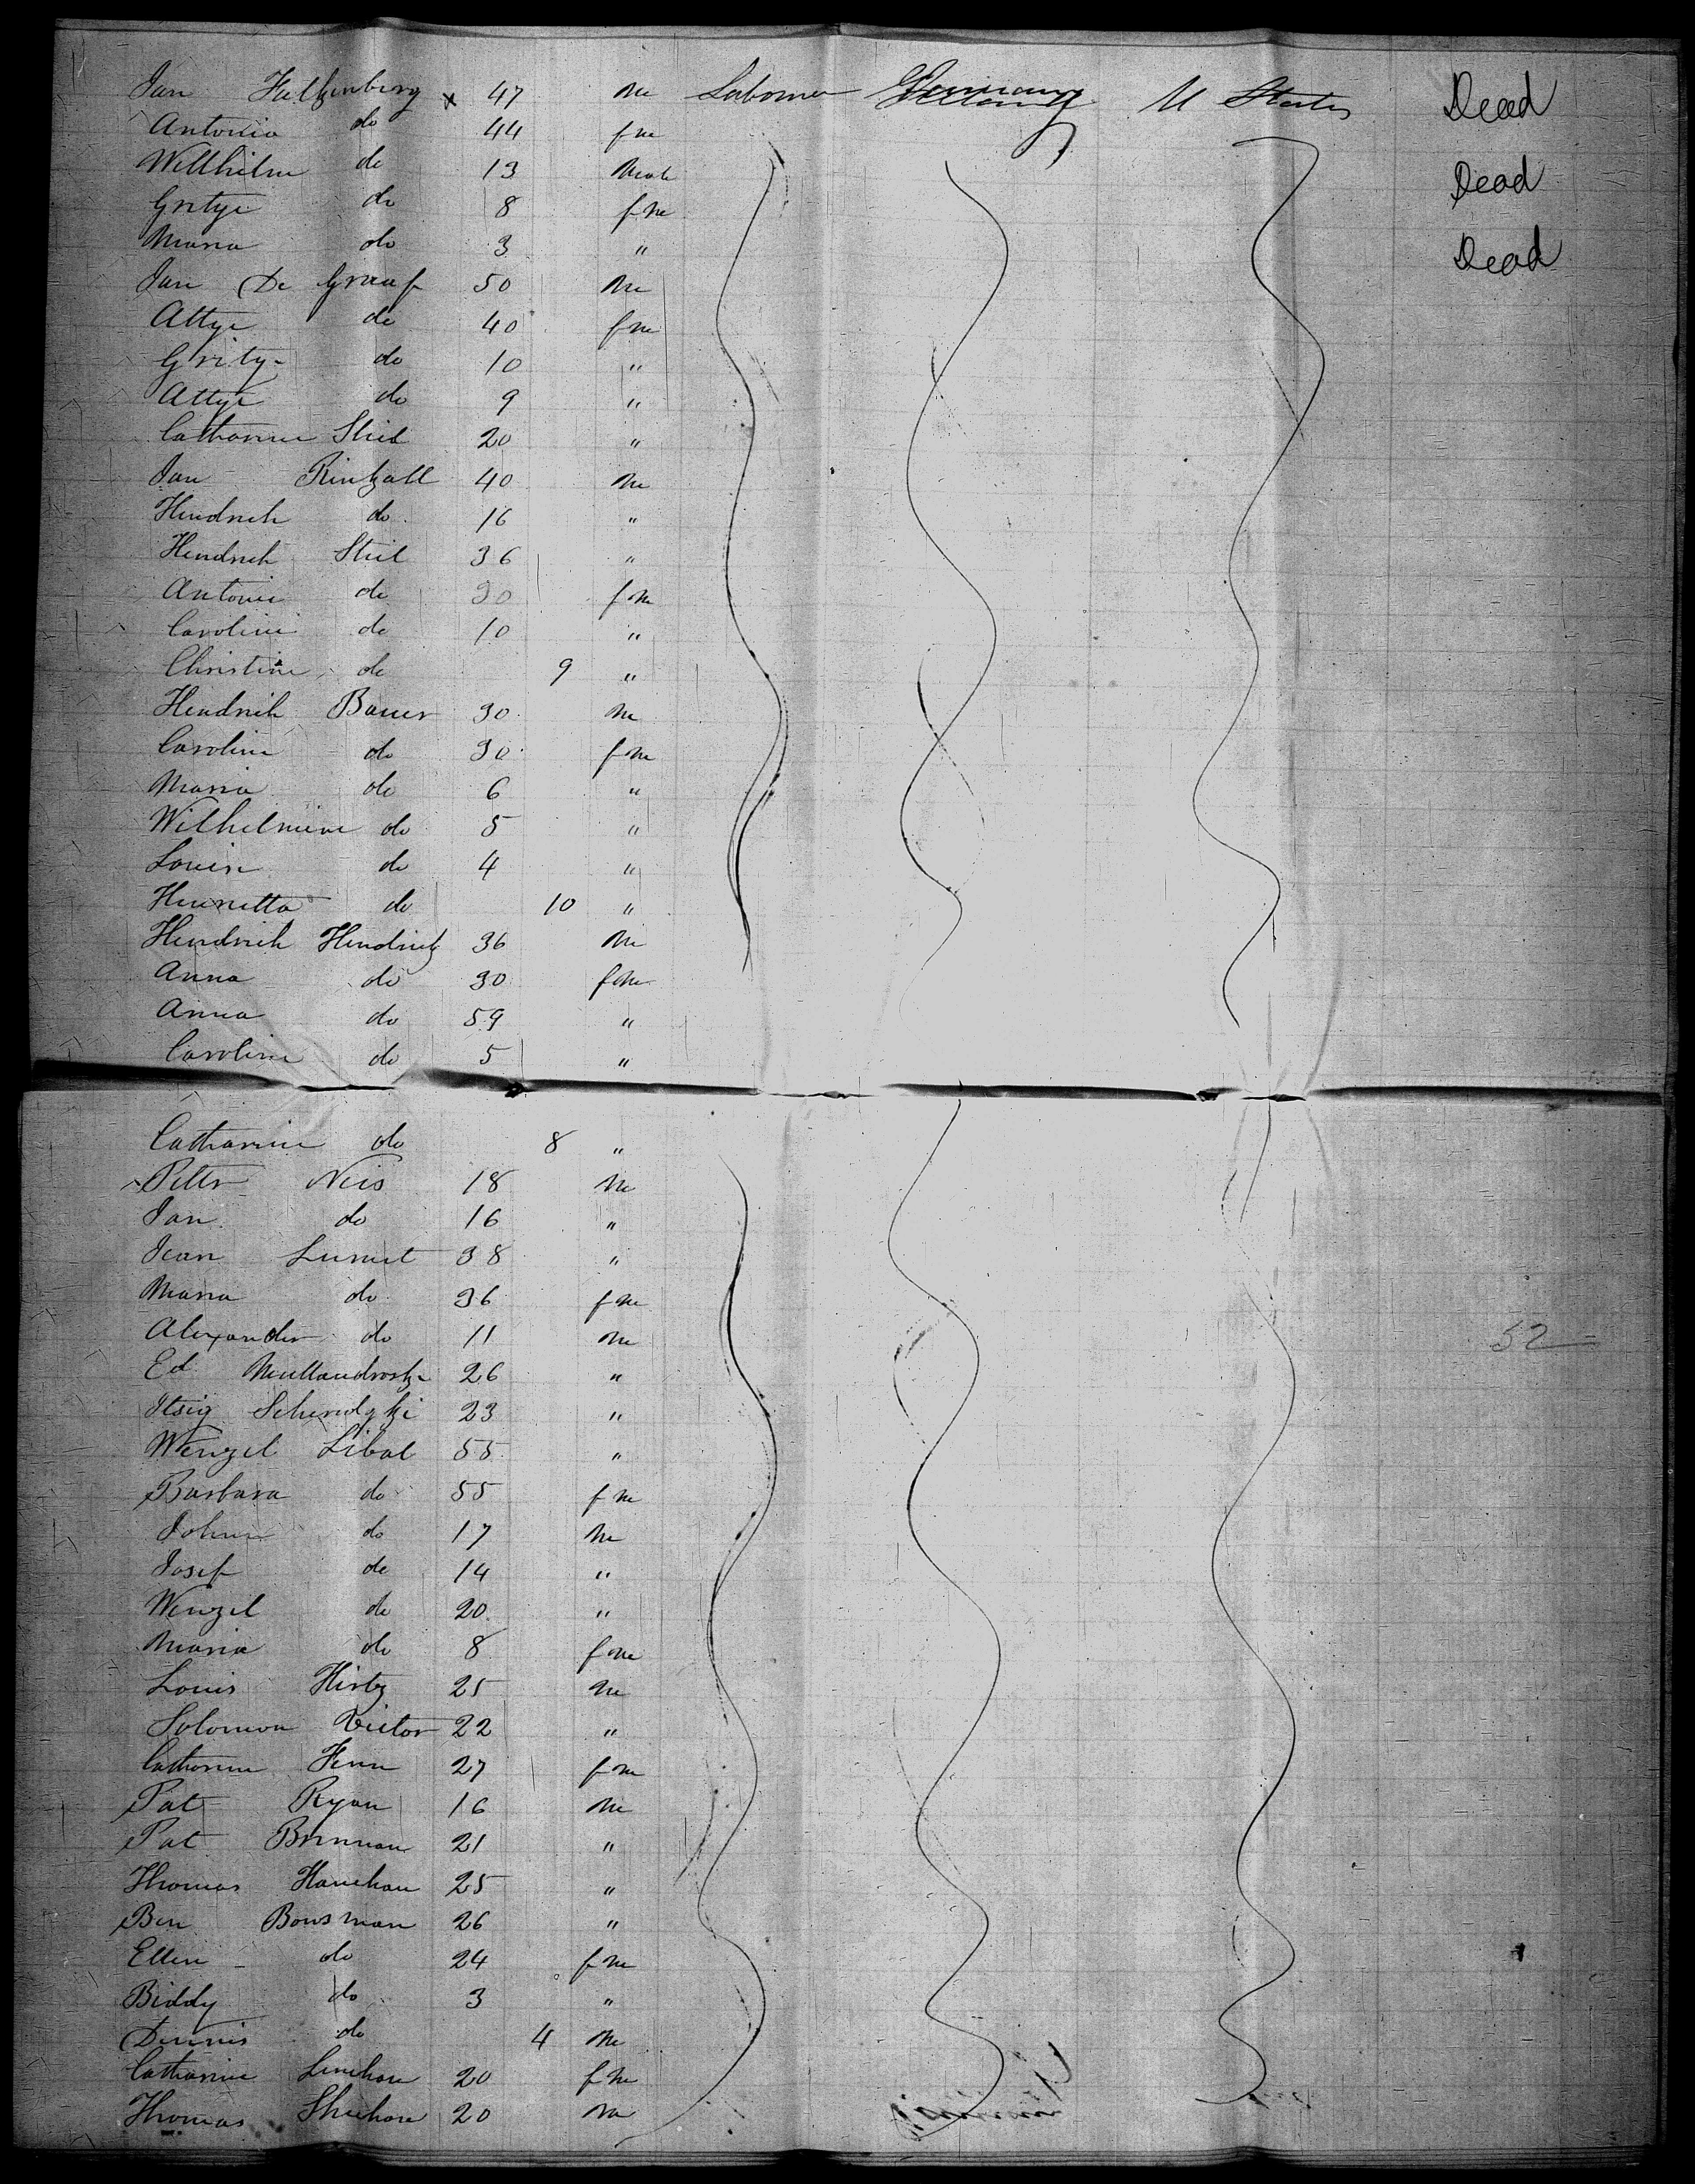 Jan Falkenburg x 47 m Laborer Germany U States Dead
Antonia do 44 fm
Willhilm do 13 Male Dead
Gritye do 8 fm
Maria do 3 " Dead
Jan De Graaf 50 m
Attye do 40 fm
Grity do 10 "
Attye do 9 "
Catharine Stiel 20 "
Jan Rinkall 40 m
Hendrich do 16 "
Hendrich Stiel 36 "
Antonie do 30 fm
Caroline do 10 "
Christine do 9 "
Hendrik Bauer 30 m
Caroline do 30 fm
Maria do 6 "
Wilhelmine do 5 "
Louise do 4 "
Henrietta do 10 "
Hendrik Hendrick 36 m
Anna do 30 fm
Anna do 59 "
Caroline do 5 "
Catharine do 8 "
Peter Neis 18 m
Jan do 16 "
Jean Lumet 38 "
Maria do 36 fm
Alexander do 11 m
52
Ed 26 "
Itsig 23 "
Wenzel Libal 55 "
Barbara do 55 fm
Johan do 17 m
Josef do 14 "
Wenzel do 20 "
Maria do 8 fm
Louis Hirtz 25 m
Solomon Victor 22 "
Catharine Fenn 27 fm
Pat Ryan 16 m
Pat Brennan 21 "
Thomas Hanehan 25 "
Ben Bowsman 26 "
Ellen do 24 fm
Biddy do 3 "
Dennis do 4 m
Catharine Linehan 20 fm
Thomas Sheehan 20 m